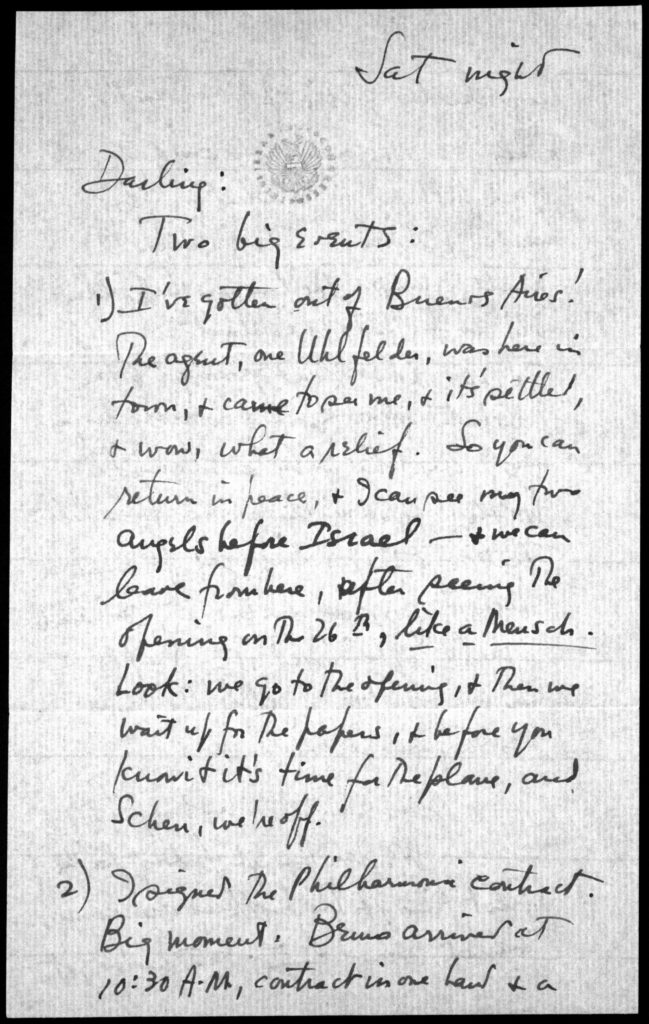 Sat night
Darling:
Two big events:
1) I've gotten out of Buenos Aires!
The agent, one Uhlfelder, was here in
town, & came to see me, & it's settled,
& wow, what a relief. So you can
return in peace, & I can see my two
angels before Israel — & we can
leave from here, after seeing the
opening on the 26th, like a Mensch.
Look: we go to the opening, & then we
wait up for the papers, & before you
know it it's time for the plane, and
Schön, we're off.
2) I signed the Philharmonic contract.
Big moment. Bruno arrived at
10:30 A.M., contract in one hand & a